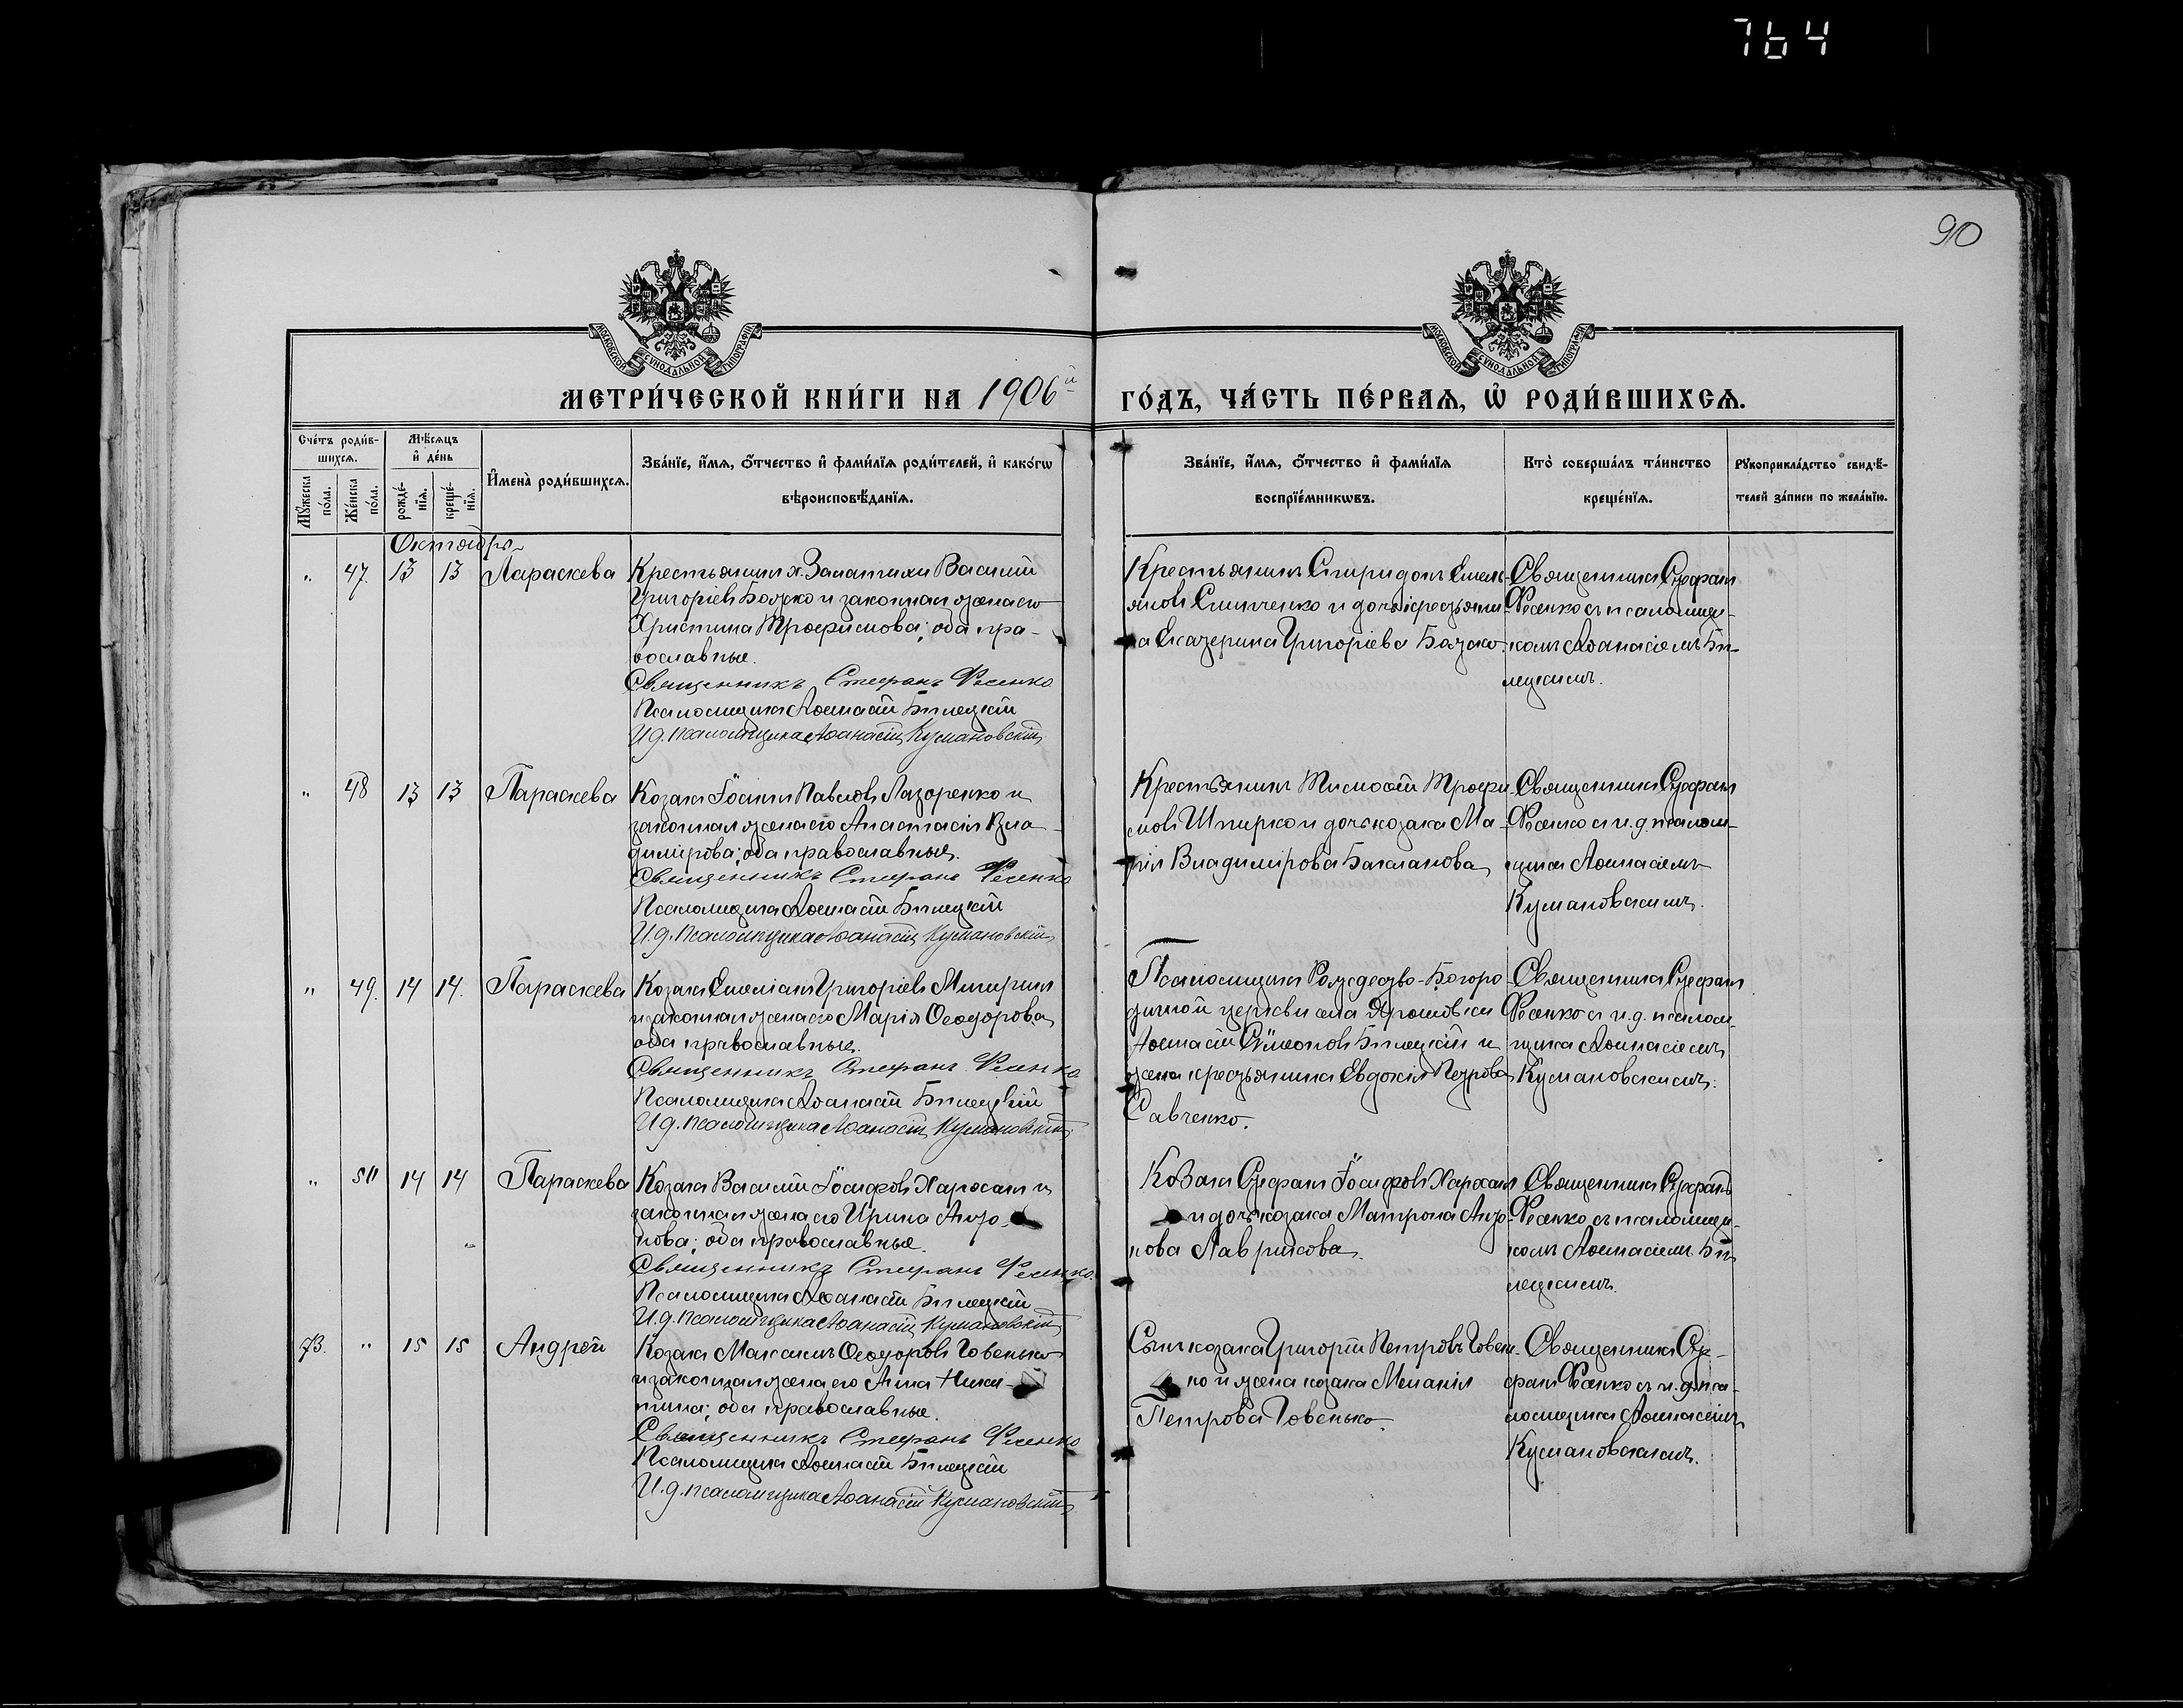 764
90
МОСКОВСКОЙ СѴНОДАЛЬНОЙ ТИПОГРАФІИ
МОСКОВСКОЙ СѴНОДАЛЬНОЙ ТИПОГРАФІИ
МЕТРИ́ЧЕСКОЙ КНИ́ГИ НА 1906й ГО́ДЪ, ЧА́СТЬ ПЕ́РВАѦ, Ѡ҆ РОДИ́ВШИХСѦ.
Сче́тъ роди́в-
шихсѧ.
Мꙋ́жеска
по́ла.
Же́нска
по́ла.
Мѣ́сѧцъ
и҆ де́нь
рожде́-
нїѧ.
креще́-
нїѧ.
И҆мена̀ роди́вшихсѧ.
Зва́нїе, и҆́мѧ, ѻ҆́тчество и҆ фами́лїѧ роди́телей, и҆ како́гѡ
вѣроисповѣ́данїѧ.
Зва́нїе, и҆́мѧ, ѻ҆́тчество и҆ фами́лїѧ
воспрїе́мникѡвъ.
Кто̀ соверша́лъ та́инство
креще́нїѧ.
Рꙋкоприкла́дство свидѣ́-
телей за́писи по жела́нїю.
Октябрь
" 47. 13 13 Параскева
Крестьянинъ х. Василій
Григоріевъ Божко и законная жена его
Христина Трофимова; оба пра-
вославные.
Священникъ Стефанъ Фесенко
Псаломщикъ Аѳанасій Билецкій
И.д. псаломщика Аѳанасій Кумановскій
Крестьянинъ Спиридонъ Емель-
яновъ и дочь крестьяни-
на Екатерина Григоріева Божко.
Священникъ Стефанъ
Фесенко съ псаломщи-
комъ Аѳанасіемъ Би-
лецкимъ.
" 48 13 13 Параскева
Козакъ Іоаннъ Павловъ Лазоренко и
законная жена его Анастасія Вла-
димірова; оба православные.
Священникъ Стефанъ Фесенко
Псаломщикъ Аѳанасій Билецкій
И.д. псаломщика Аѳанасій Кумановскій
Крестьянинъ Тимоѳей Трофи-
мовъ Шпирко и дочь козака Ма-
рія Владимірова Бакланова
Священникъ Стефанъ
Фесенко съ и.д. псалом-
щика Аѳанасіемъ
Кумановскимъ.
" 49. 14 14. Параскева
Козакъ Емеліанъ Григоріевъ
и законная жена его Марія Ѳеодорова
оба православные.
Священникъ Стефанъ Фесенко
Псаломщикъ Аѳанасій Билецкій
И.д. псаломщика Аѳанасій Кумановскій
Псаломщикъ Рождество-Богоро-
дичной церкви села
Аѳанасій Симеоновъ Билецкій и
жена крестьянина Евдокія Петрова
Савченко.
Священникъ Стефанъ
Фесенко съ и.д. псалом-
щика Аѳанасіемъ
Кумановскимъ.
" 50 14 14 Параскева
Козакъ Василій Іосифовъ и
законная жена его Ирина Анто-
нова; оба православные.
Священникъ Стефанъ Фесенко
Псаломщикъ Аѳанасій Билецкій
И.д. псаломщика Аѳанасій Кумановскій
Козакъ Стефанъ Іосифовъ
и дочь козака Матрона Анто-
нова Лаврикова.
Священникъ Стефанъ
Фесенко съ псаломщи-
комъ Аѳанасіемъ Би-
лецкимъ.
73. " 15 15 Андрей
Козакъ Максимъ Ѳеодоровъ Говенько
и законная жена его Анна Ники-
тина; оба православные.
Священникъ Стефанъ Фесенко
Псаломщикъ Аѳанасій Билецкій
И.д. псаломщика Аѳанасій Кумановскій
Сынъ козака Григорій Петровъ Говень-
ко и жена козака Меланія
Петрова Говенько.
Священникъ Сте-
фанъ Фесенко съ и.д. пса-
ломщика Аѳанасіемъ
Кумановскимъ.